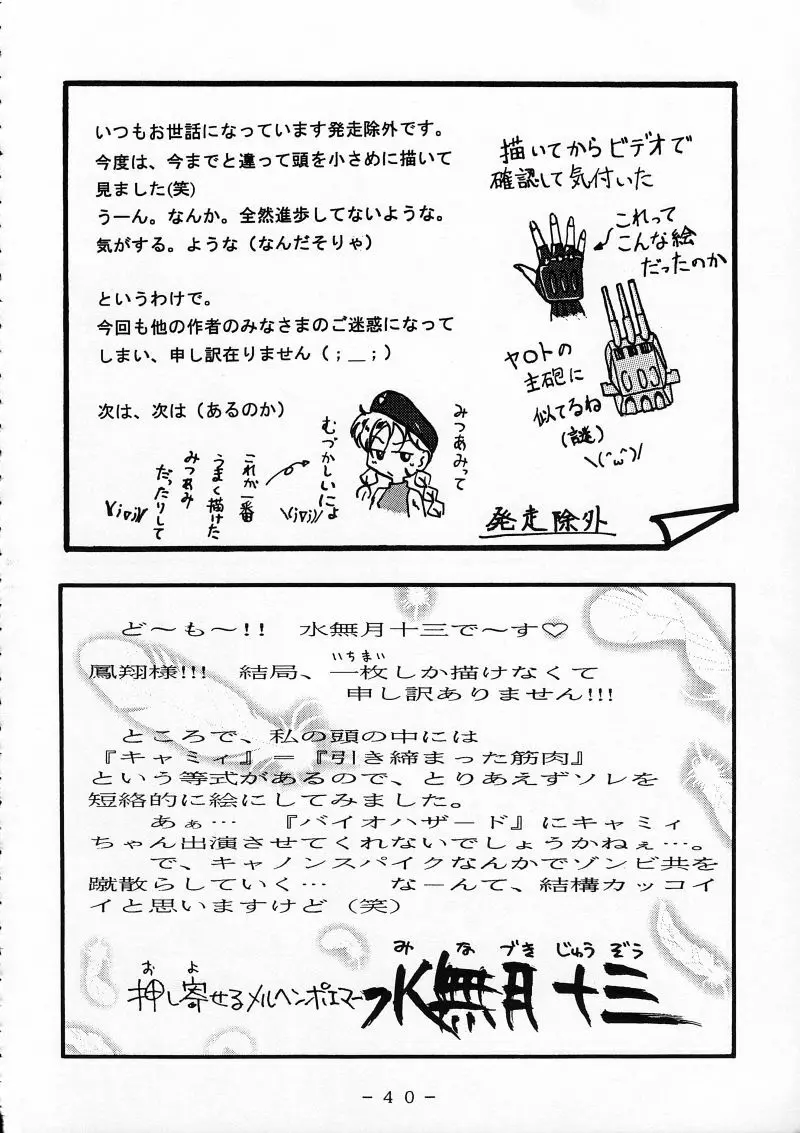 いつもお世話になっています発走除外です。
今度は、今までと違って頭を小さめに描いて
見ました(笑)
うーん。なんか。全然進歩してないような。
気がする。ような（なんだそりゃ）
というわけで。
今回も他の作者のみなさまのご迷惑になって
しまい、申し訳在りません（；＿；）
次は、次は（あるのか）
描いてからビデオで
確認して気付いた
これって
こんな絵
だったのか
ヤマトの
主砲に
似てるね
(謎)
\(^ω^)/
みつあみって
むづかしいによ
これが一番
うまく描けた
みつあみ
だったりして
発走除外
ど～も～!!　水無月十三で～す♡
いちまい
鳳翔様!!!　結局、一枚しか描けなくて
申し訳ありません!!!
ところで、私の頭の中には
『キャミィ』＝『引き締まった筋肉』
という等式があるので、とりあえずソレを
短絡的に絵にしてみました。
あぁ…　『バイオハザード』にキャミィ
ちゃん出演させてくれないでしょうかねぇ…。
で、キャノンスパイクなんかでゾンビ共を
蹴散らしていく…　なーんて、結構カッコイ
イと思いますけど（笑）
お　よ
押し寄せるメルヘンポエマー
み　な　づき　じゅう　ぞう
水無月十三
- 40 -